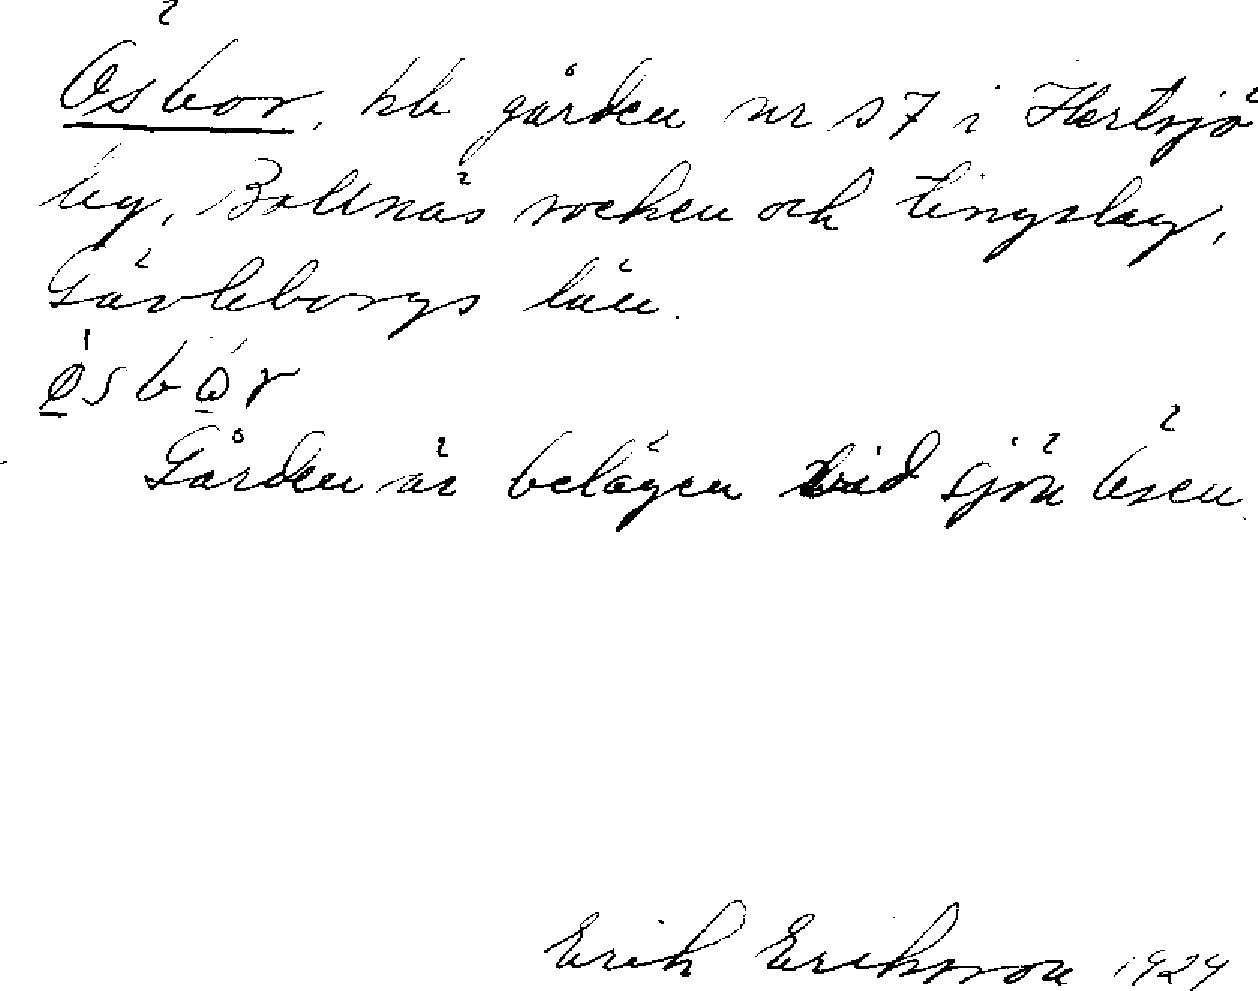 Ösbor, hb gården nr 57 i Hertsjö
by, Bollnäs socken och tingslag,
Gävleborgs län.
ǿsbo̱r
Gården är belägen vid sjön Ösen.
Erik Eriksson 1924